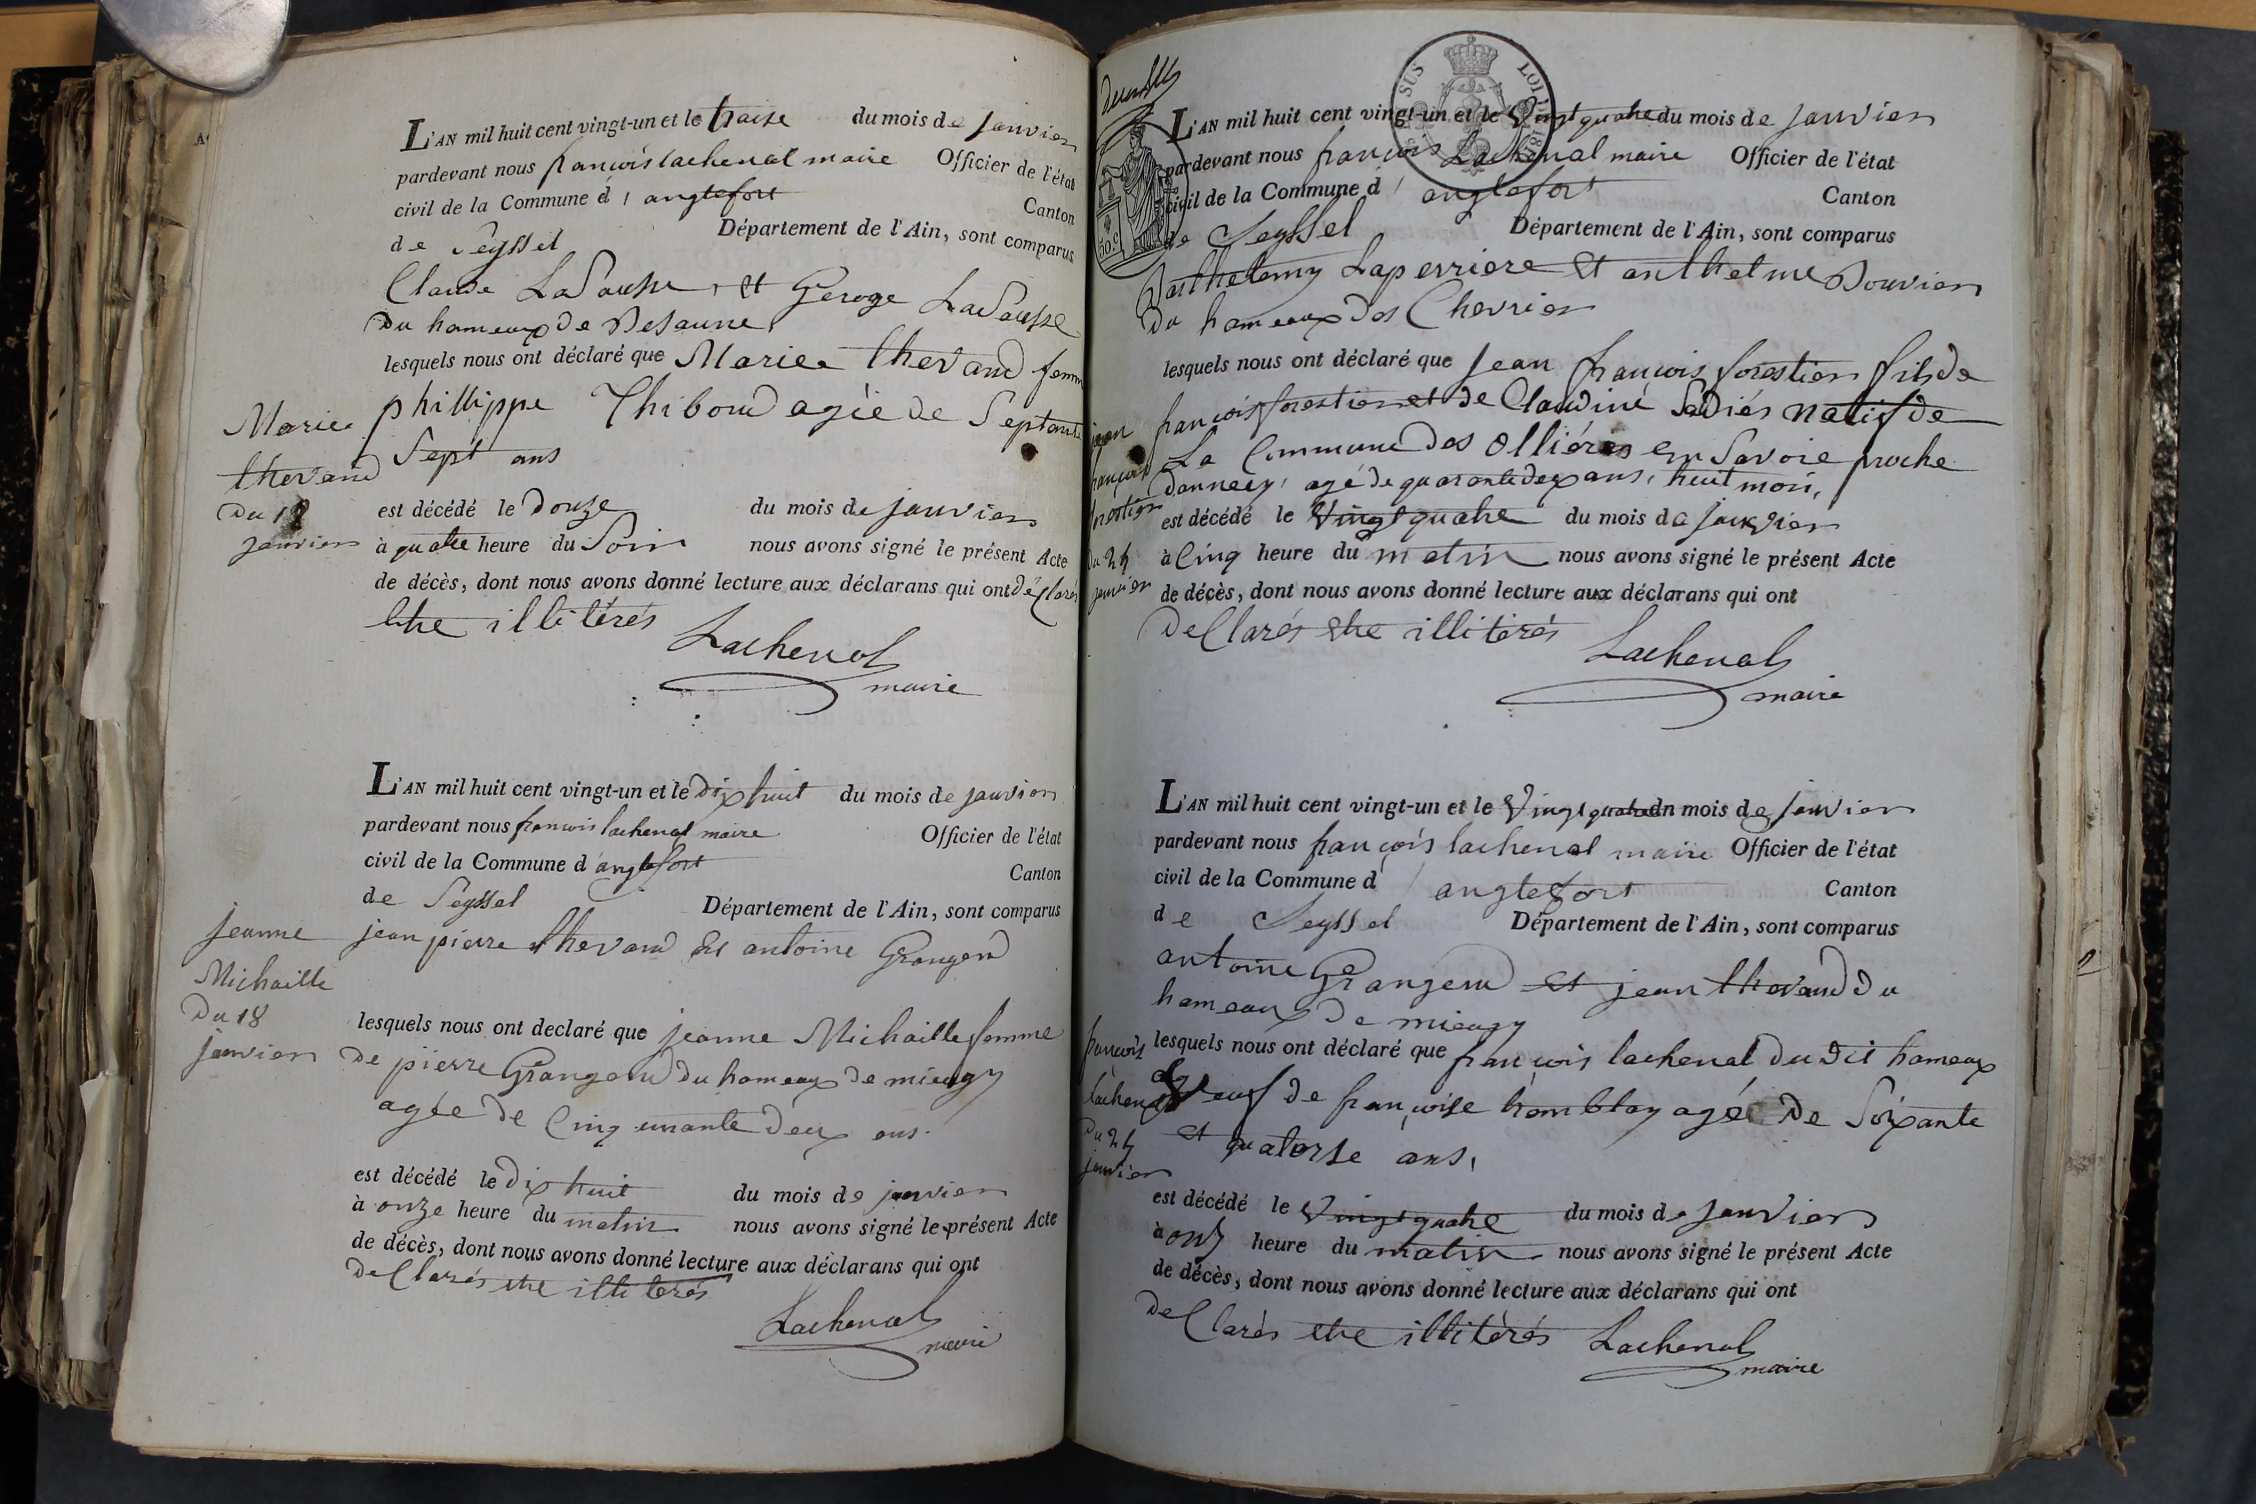 L'AN mil huit cent vingt-un et le traize du mois de janvier
pardevant nous françois lachenal maire Officier de l'état
civil de la Commune d'anglefort Canton
de Seyssel Département de l'Ain, sont comparus
Claude LaSausse et George LaSausse
Du hameaux de
lesquels nous ont déclaré que Marie thevand femme
phillippe Thiboud agée de Septante
Sept ans
est décédé le Douze du mois de janvier
à quatre heure du Soir nous avons signé le présent Acte
de décès, dont nous avons donné lecture aux déclarans qui ont déClarés
être illitérés
Lachenal
maire
Marie
thevand
Du
janvier
L'AN mil huit cent vingt-un et le dixhuit du mois de janvier
pardevant nous françois lachenal maire Officier de l'état
civil de la Commune d'anglefort Canton
de Seyssel Département de l'Ain, sont comparus
jean pierre thevand Et antoine Grangend
lesquels nous ont declaré que jeanne Michaille femme
De pierre Grangend du hameaux de mieugy
agée de Cinquante Deux ans.
est décédé le Dixhuit du mois de janvier
à onze heure du matin nous avons signé le présent Acte
de décès, dont nous avons donné lecture aux déclarans qui ont
DeClarés etre illiterés
Lachenal
maire
jeanne
Michaille
Du 18
janvier
SUS LOI DE 1816
50 c.
L'AN mil huit cent vingt-un et le Vingtquatre du mois de janvier
pardevant nous françois Lachenal maire Officier de l'état
civil de la Commune d'anglefort Canton
de Seyssel Département de l'Ain, sont comparus
Barthelemy Laperriere Et anthelme Bouvier
Du hameaux des Chevrier
lesquels nous ont déclaré que jean françois forestier fils de
françois forestier et de Claudine natif de
La Commune des Olliéres en Savoie proche
Dannecy, agé de quarantedeux ans, huit mois,
est décédé le Vingtquatre du mois de janvier
à Cinq heure du matin nous avons signé le présent Acte
de décès, dont nous avons donné lecture aux déclarans qui ont
DeClarés etre illitérés
Lachenal
maire
jean
françois
forestier
Du 24
janvier
L'AN mil huit cent vingt-un et le Vingtquatre du mois de janvier
pardevant nous françois lachenal maire Officier de l'état
civil de la Commune d'anglefort Canton
de Seyssel Département de l'Ain, sont comparus
antoine Grangend Et jean thevand Du
hameaux De mieugy
lesquels nous ont déclaré que françois lachenal Du Dit hameaux
Veuf de françoise tramblay agé De Soixante
Et quatorse ans,
est décédé le Vingtquatre du mois de janvier
à onz heure du matin nous avons signé le présent Acte
de décès, dont nous avons donné lecture aux déclarans qui ont
DeClarés etre illitèrés
Lachenal
maire
françois
lachenal
Du 24
janvier